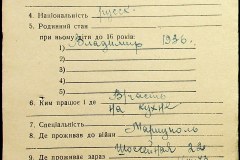 4. Національність русск.
5. Родинний стан
при ньому діти до 16 років:
1) Владимир 1936.
2)
3)
4)
5)
6. Ким працює і де В/часть
на кухне
7. Спеціяльність
8. Де проживав до війни Мариуполь
Шоссейная 22
9. Де проживає зараз